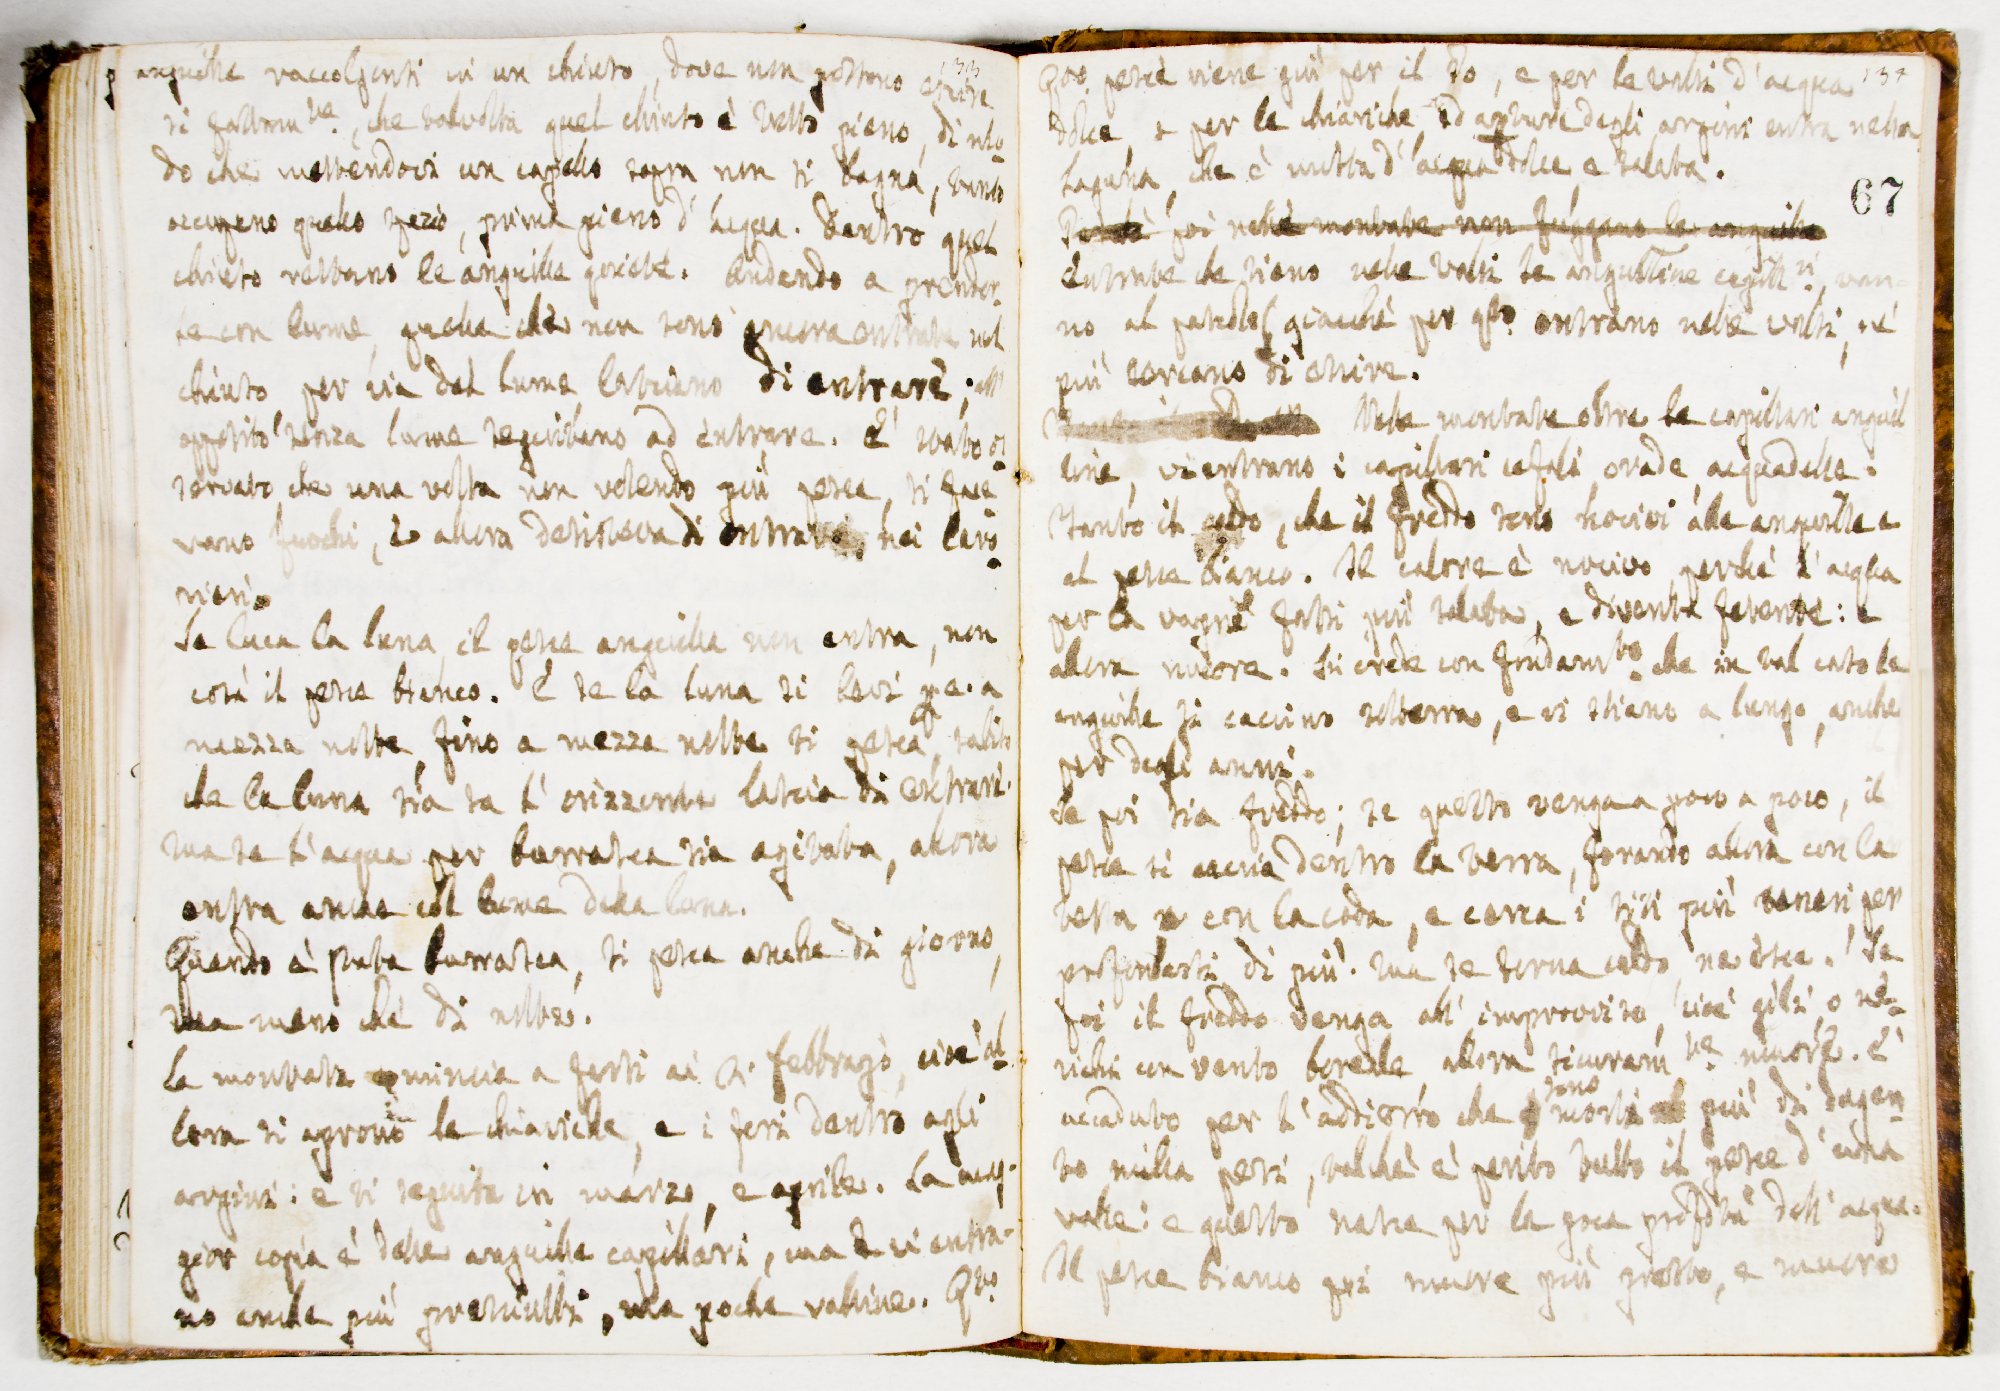 133
anguille raccolgonsi in un chiuso, dove non possono escire
si fattam.te, che talvolta quel chiuso è tutto pieno, di mo
do che mettendovi un capello sopra non si bagna, tanto
occupano quello spazio, prima pieno d'acqua. Dentro quel
chiuso restano le anguille quiete. Andando a prender
le con lume, quelle che non sono ancora entrate nel
chiuso per via del lume lasciano di entrare; all'
opposito senza lume seguitano ad entrare. È stato os
servato che una volta non volendo più pesce, si face
vano fuochi, e allora desisteva di entrare nei lavo
rieri.
Se luce la luna, il pesce anguilla non entra, non
così il pesce bianco. E se la luna si levi p.e. a
mezza notte, fino a mezza notte si pesca, subito
che la luna sia su l'orizzonte lascia di entrare.
ma se l'acqua per burrasca sia agitata, allora
entra anche col lume della luna.
Quando è stata burrasca, si pesca anche di giorno,
ma meno che di notte.
La montata comincia a farsi ai 2. febbrajo, cioè al
lora si aprono le chiaviche, e i fori dentro agli
argini: e si seguita in marzo, e aprile. La mag-
gior copia è delle anguille capillari, ma vi entra-
no anche più grosciette, ma poche valline. Q.to
134
Q.to pesce viene giù per il Po, e per le valli d'acqua
dolce, e per le chiaviche, ed aperture degli argini entra nella
laguna, che è mista d'acqua dolce e salata.
67
Perchè poi nelle montate non fuggano le anguille
Entrate che siano nelle valli le anguilline capill.ri, van-
no al pascolo (giacchè per q.to entrano nelle valli, nè
più cercano di escire.
Nelle montate oltre le capillari anguil
line, vi entrano i capillari cefali, orade, acquadelle.
Tanto il caldo, che il freddo sono nocivi alle anguille e
al pesce bianco. Il calore è nocivo perchè l'acqua
per la ragne fassi più salata, e diventa fetente: e
allora muore. Si crede con fondam.to che in tal caso le
anguille si caccino sotterra, e vi stiano a lungo, anche
per degli anni.
Se poi sia freddo; se questo venga a poco a poco, il
pesce si caccia dentro la terra, forando allora con la
testa e con la coda, e cerca i siti più teneri per
profondarsi di più. ma se torna caldo, ne esce. Se
poi il freddo venga all'improvviso, cioè gili o ne-
vichi con vento boreale, allora sicuram.te muore. È
accaduto per l'addietro che sono morti più di dugen
to milla pesi, talchè è perito tutto il pesce d'una
valle: e questo nasce per la poca profond.tà dell'acque.
Il pesce bianco poi muore più presto, e muore